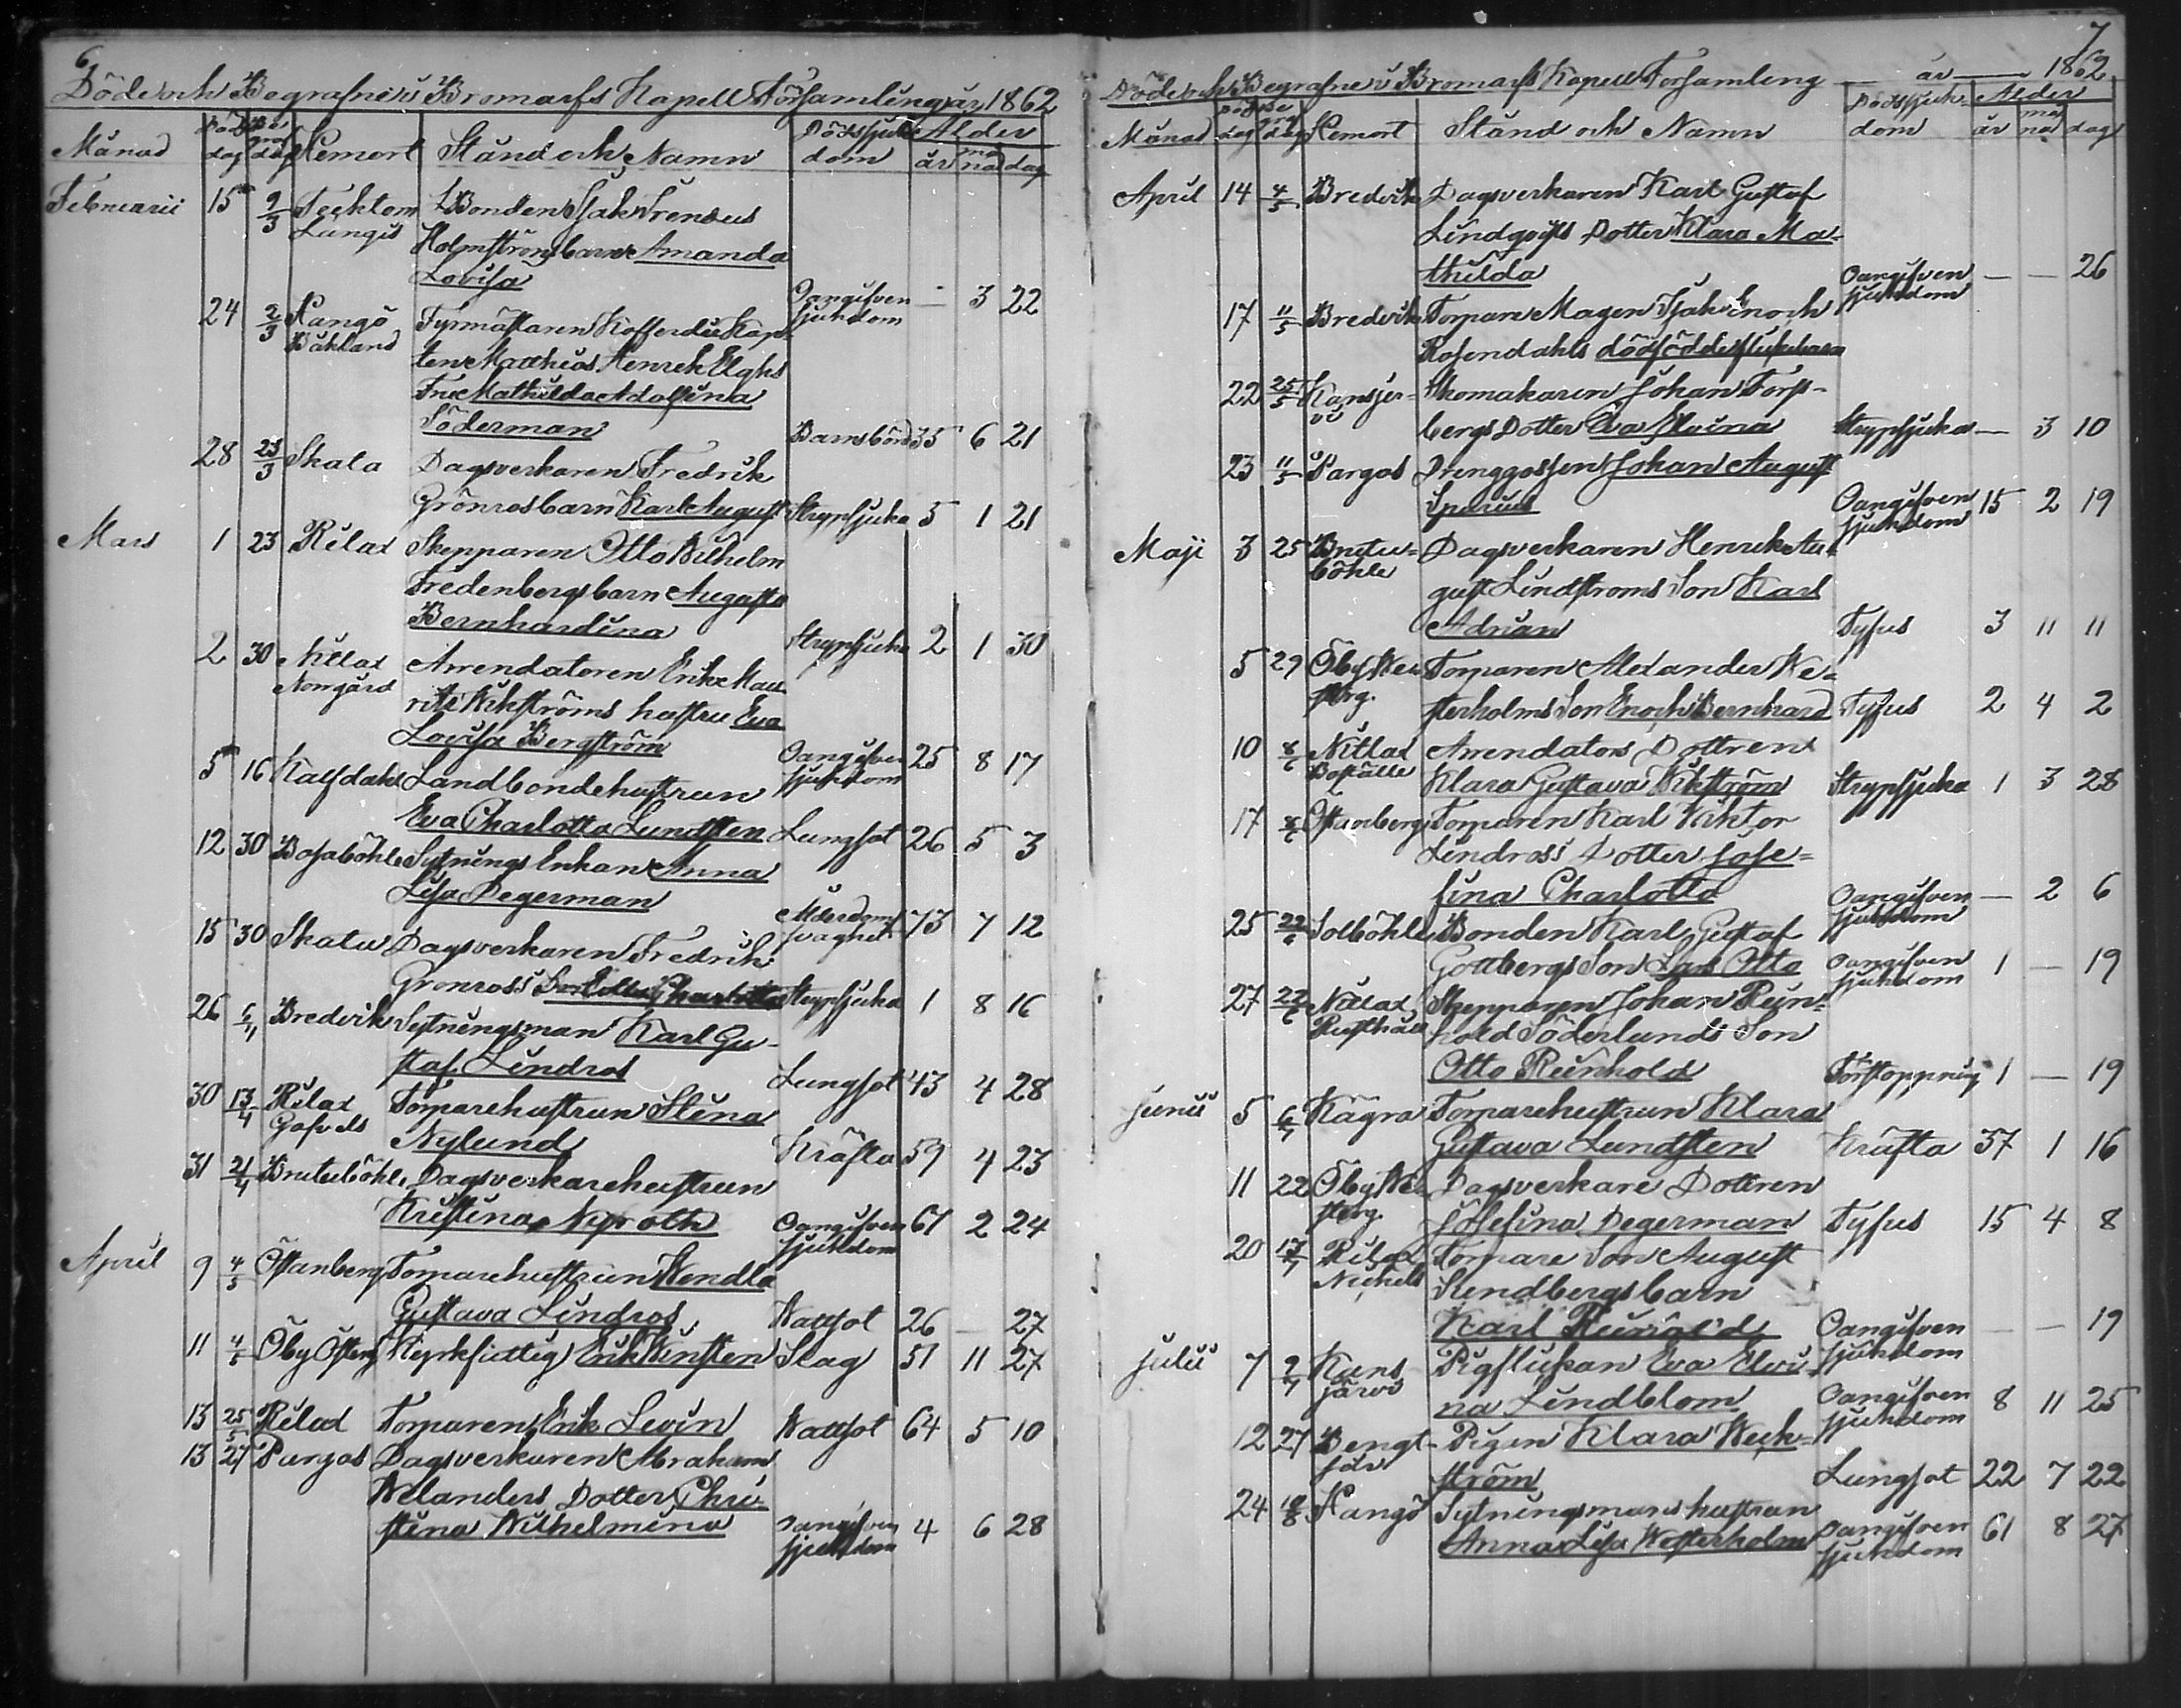 6
Döde och Begrafne i Bromarfs Kapell Församling år 1862
Månad Död dag Be graf dag Hemort Stånd och Namn Dödssjukdom Ålder år må nad dag
Februarii 15 9/3 Tecktom Bonden Isak
Langis Holmströms barn Amanda
Lovisa Oangifven sjukdom — 3 22
24 2/3 Hangö Fyrmästaren Kofferdi Kap-
Båkland ten Matthias Henrik Elghs
Fru Mathilda Adolfina
Söderman Barnsbörd 35 6 21
28 23/3 Skata Dagsverkaren Fredrik
Grönros barn Karl August Strypsjuka 5 1 21
Mars 1 23 Rilax Skepparen Otto Wilhelm
Fredenbergs barn Augusta
Bernhardina Strypsjuka 2 1 30
2 30 Nitlax Arrendatoren Erik Mau-
Norrgård ritz Wikströms hustru Eva
Lovisa Bergström Oangifven sjukdom 25 8 17
5 16 Kalfdahl Landbondehustrun
Eva Charlotta Lundsten Lungsot 26 5 3
12 30 Bosaböhle Sytnings Enkan Anna
Lisa Degerman Ålderdoms svaghet 73 7 12
15 30 Skata Dagsverkaren Fredrik
Gronross Charlotta Strypsjuka 1 8 16
26 6/4 Bredvik Sytningsman Karl Gu-
staf Lindros Lungsot 43 4 28
30 13/4 Rilax Torparehustrun Stina
Gofvels Nylund Kräfta 59 4 23
31 21/4 Brutuböhle Dagsverkarehustrun
Kristina Nyroth Oangifven sjukdom 61 2 24
April 9 4/5 Östanberg Torparehustrun Wendla
Gustava Lindros Wattsot 26 — 27
11 4/5 Öby Österg Kyrkfattig Erik Winsten Slag 51 11 27
13 25/5 Rilax Torparen Erik Levin Wattsot 64 5 10
13 27 Pargas Dagsverkaren Abraham
Welanders Dotter Chri-
stina Wilhelmina Oangifven sjukdom 4 6 28
7
Döde och Begrafne i Bromarfs Kapell Församling år 1862
Månad Död dag Be graf dag Hemort Stånd och Namn Dödssjukdom Ålder år må nad dag
April 14 4/5 Bredvik Dagsverkaren Karl Gustaf
Lindqvists Dotter Klara Ma-
thilda Oangifven sjukdom — — 26
17 11/5 Bredvik Torpare Magen Isak Enoch
Rosendahls dödfödde flickebarn
22 25/5 Kansjer- Skomakaren Johan Fors-
vi bergs Dotter Eva Strypsjuka — 3 10
23 11/5 Pargas Drenggossen Johan August
Oangifven sjukdom 15 2 19
Maji 3 25 Brutu- Dagsverkaren Henrik Au-
böhle gust Lindstroms Son Karl
Adrian Tyfus 3 11 11
5 29 Öby We- Torparen Alexander We-
sterg. sterholms Son Enoch Bernhard Tyfus 2 4 2
10 8/6 Nitlax Arrendators Dottren
Boställe Klara Gustava Wikström Strypsjuka 1 3 28
17 8/6 Östanberg Torparen Karl Viktor
Lindross Dotter Jose-
fina Charlotta Oangifven sjukdom — 2 6
25 22/6 Solböhle Bonden Karl Gustaf
Gottbergs Son Lars Otto Oangifven sjukdom 1 — 19
27 22/6 Nitlax Skepparen Johan Rein-
Rusthåll hold Söderlunds Son
Otto Reinhold Förstoppning 1 — 19
Junii 5 6/7 Kägra Torparehustrun Klara
Gustava Lundsten Kräfta 37 1 16
11 22 Öby We- Dagsverkare Dottren
sterg. Josefina Degerman Tyfus 15 4 8
20 13/7 Rilax Torpare Son August
Nickels Sundbergs barn
Karl Oangifven sjukdom — — 19
Julii 7 Kans Pigflickan Eva Elvi-
järvi na Lindblom Oangifven sjukdom 8 11 25
12 27 Bengt- Pigen Klara Weck-
sår ström Lungsot 22 7 22
24 10/8 Hangö Sytningsmans hustrun
Anna Lisa Westerholm Oangifven sjukdom 61 8 27